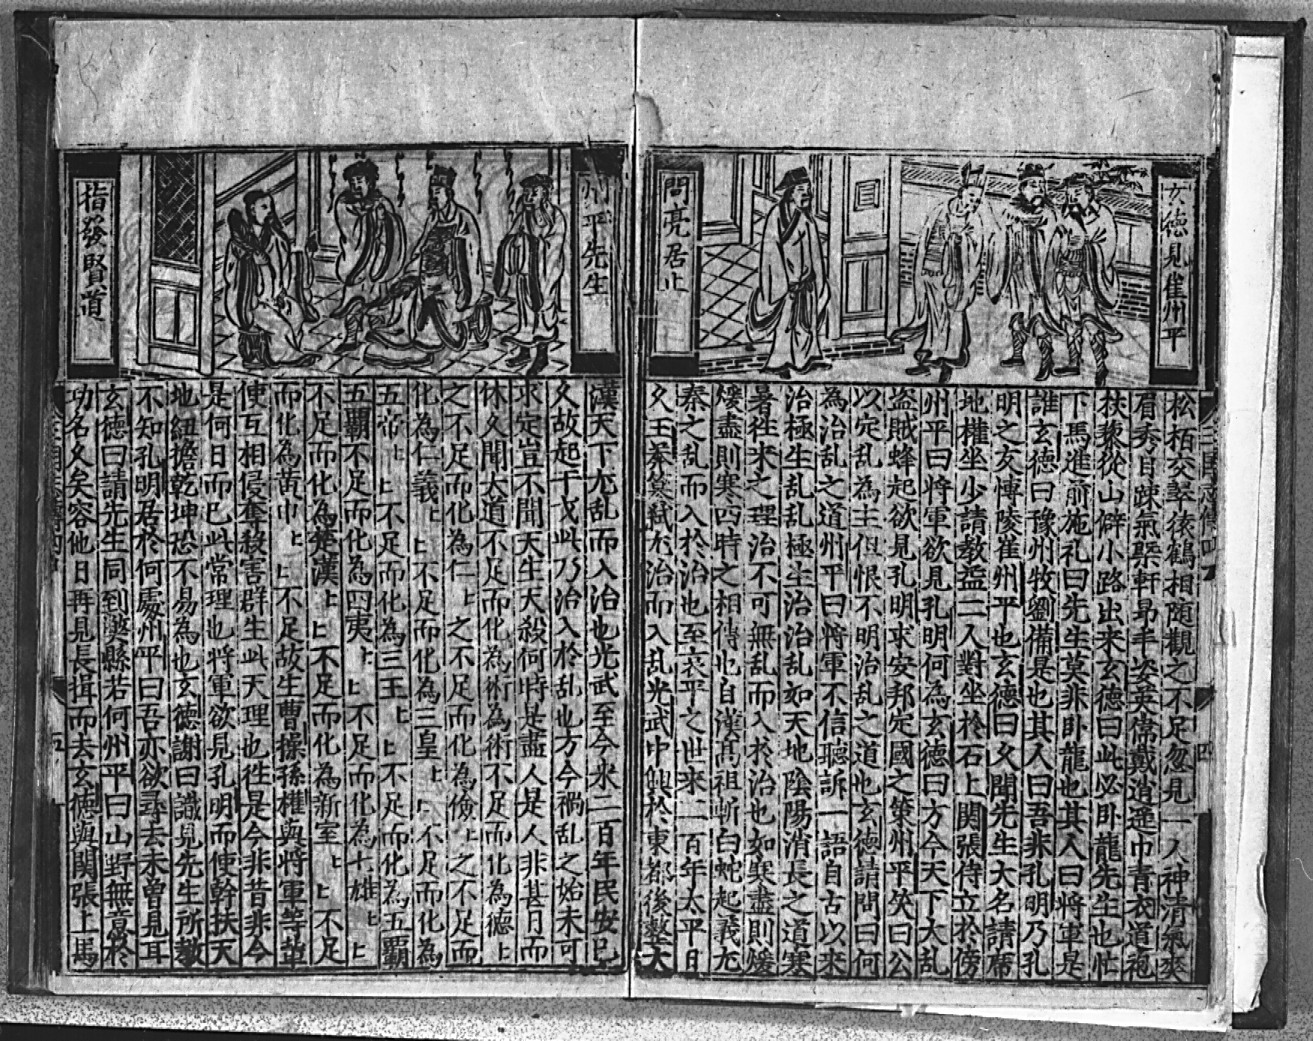 玄德見崔州平
問亮居止
松栢交翠猿鶴相随觀之不足忽見一人神清氣爽
眉秀目踈氣槩軒昂丰姿英偉戴逍遥巾青衣道袍
扶藜從山僻小路出来玄德曰此必卧龍先生也忙
下馬進前施礼曰先生莫非卧龍也其人曰將軍是
誰玄德曰豫州牧劉備是也其人曰吾非孔明乃孔
明之友博陵崔州平也玄德曰久聞先生大名請席
地權坐少請教益二人對坐於石上関張侍立於傍
州平曰將軍欲見孔明何為玄德曰方今天下大乱
盗賊蜂起欲見孔明求安邦定國之策州平笑曰公
以定乱為主但恨不明治乱之道也玄德請問曰何
為治乱之道州平曰將軍不信聽訴一語自古以来
治極生乱乱極生治治乱如天地陰陽消長之道寒
暑徃来之理治不可無乱而入於治也如寒盡則煖
煖盡則寒四時之相傳也自漢髙祖斬白蛇起義兵
秦之乱而入於治也至哀平之世来二百年太平日
久王莽簒弒尤治而入乱光武中興於東都後整大
州平先生
指發賢道
漢天下尤乱而入治也光武至今来二百年民安已
久故起干戈此乃治入於乱也方今禍乱之始未可
求定豈不聞天生天殺何時是盡人是人非甚日而
休久聞大道不足而化為術為術不足而化為德上
之不足而化為仁上之不足而化為儉上之不足而
化為仁義上上不足而化為三皇上上不足而化為
五帝上上不足而化為三王上上不足而化為五覇
五覇不足而化為四夷上上不足而化為七雄上上
不足而化為楚漢上上不足而化為新室上上不足
而化為黄巾上上不足故生曹操孫權與將軍等輩
使互相侵奪殺害群生此天理也徃是今非昔非今
是何日而已此常理也將軍欲見孔明而使斡扶天
地紐擔乾坤恐不易為也玄德謝曰識見先生所教
不知孔明居於何處州平曰吾亦欲尋去未曾見耳
玄德曰請先生同到獘縣若何州平曰山野無意於
功名久矣容他日再見長揖而去玄德與関張上馬